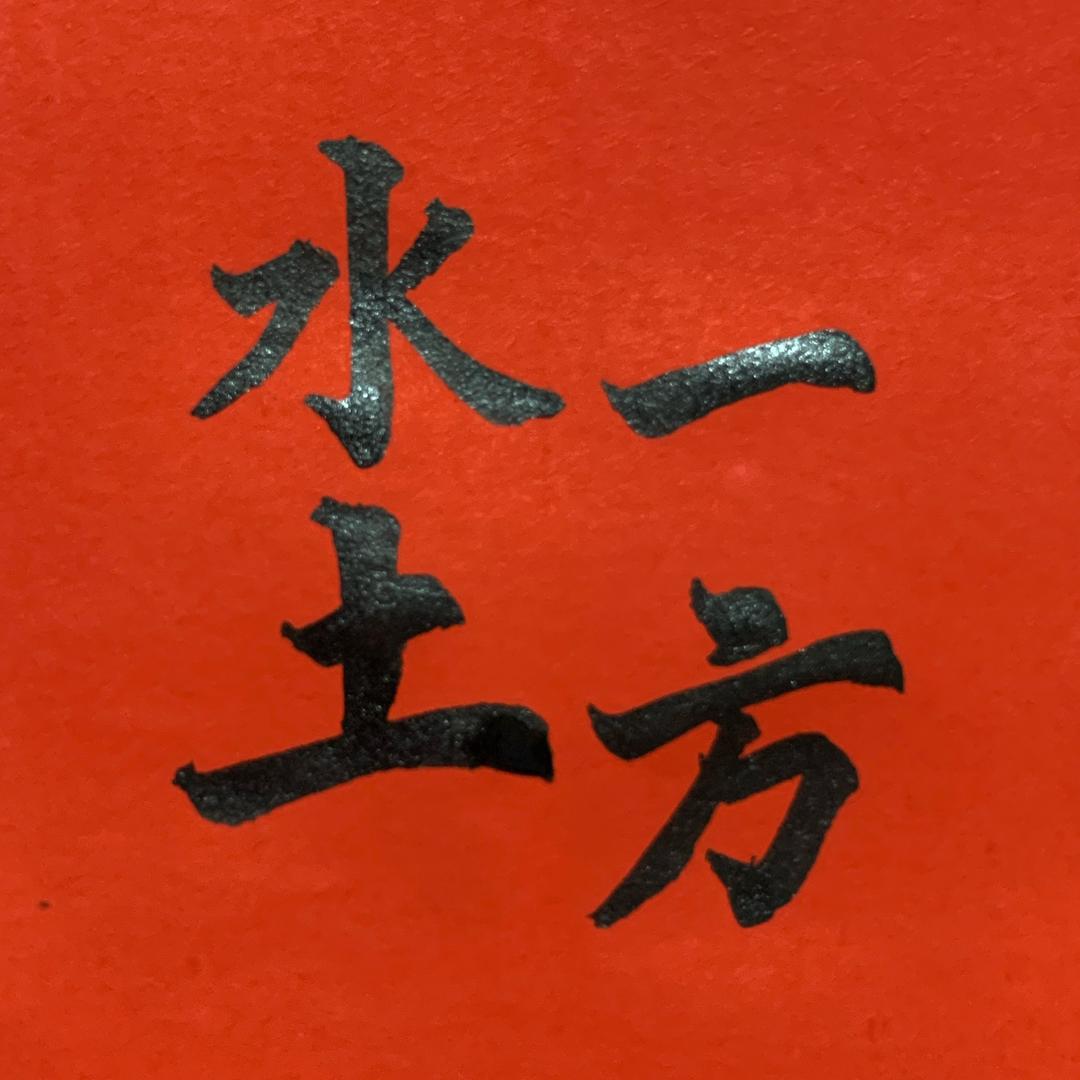 一方
水土